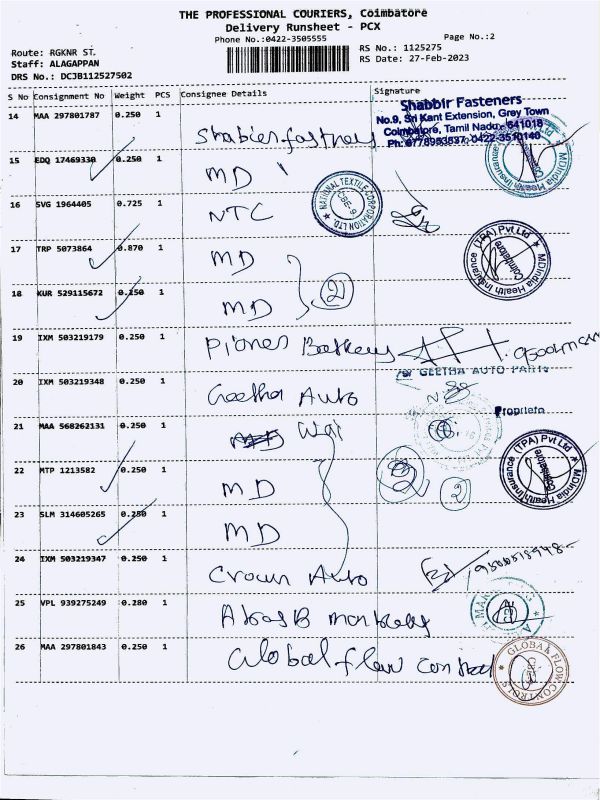 THE PROFESSIONAL COURIERS, Coimbatore
Delivery Runsheet - PCX
Phone No.:0422-3505555
Page No.:2
Route: RGKNR ST.
RS No.: 1125275
Staff: ALAGAPPAN
RS Date: 27-Feb-2023
DRS No.: DCJB112527502
S No Consignment No Weight PCS Consignee Details Signature
14 MAA 297801787 0.250 1
Shabbir Fasteners
No.9, Sri Kant Extension, Grey Town
Coimbatore, Tamil Nadu - 641018
15 EDQ 17469330 0.250 1 MD
MDIndia Health Insurance
16 SVG 1964405 0.725 1 NTC
NATIONAL TEXTILE CORPORATION LTD
17 TRP 5073864 0.870 1 MD
MDIndia Health Insurance (TPA) Pvt Ltd
Coimbatore
18 KUR 529115672 0.250 1 MD
2
19 IXM 503219179 0.250 1
20 IXM 503219348 0.250 1 Geetha Auto
GEETHA AUTO PARTS
21 MAA 568262131 0.250 1
22 MTP 1213582 0.250 1 MD
2
MDIndia Health Insurance (TPA) Pvt Ltd
Coimbatore
23 SLM 314605265 0.250 1 MD
24 IXM 503219347 0.250 1 Crown Auto
25 VPL 939275249 0.280 1
26 MAA 297801843 0.250 1 Global flow control
GLOBAL FLOW CONTROLS
CBE